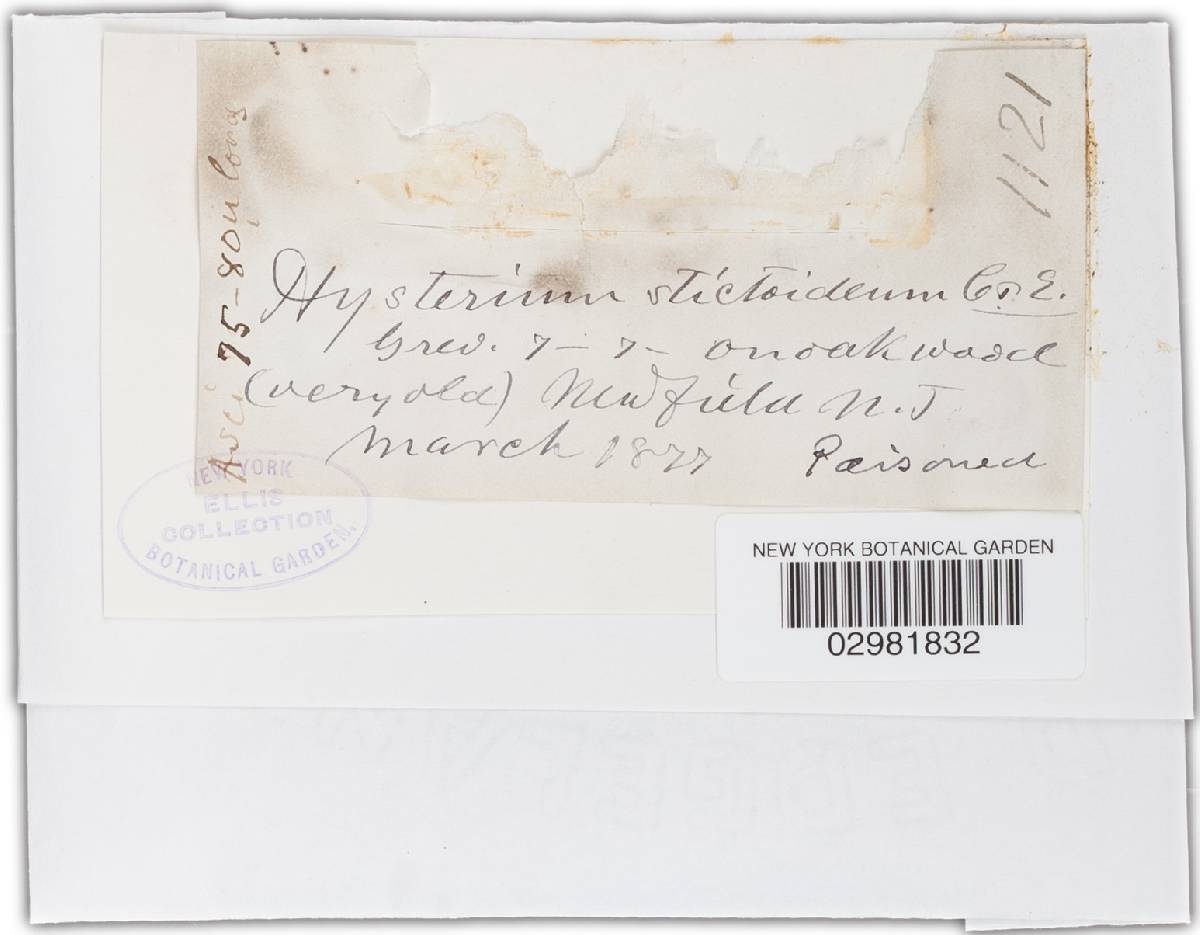 1121
Asci 75-80µ long
Hysterium stictoideum C&E.
Grev. 7-7- on oak wood
(very old) Newfield N.J
March 1877 Poisoned
NEW YORK
ELLIS
COLLECTION
BOTANICAL GARDEN.
NEW YORK BOTANICAL GARDEN
02981832